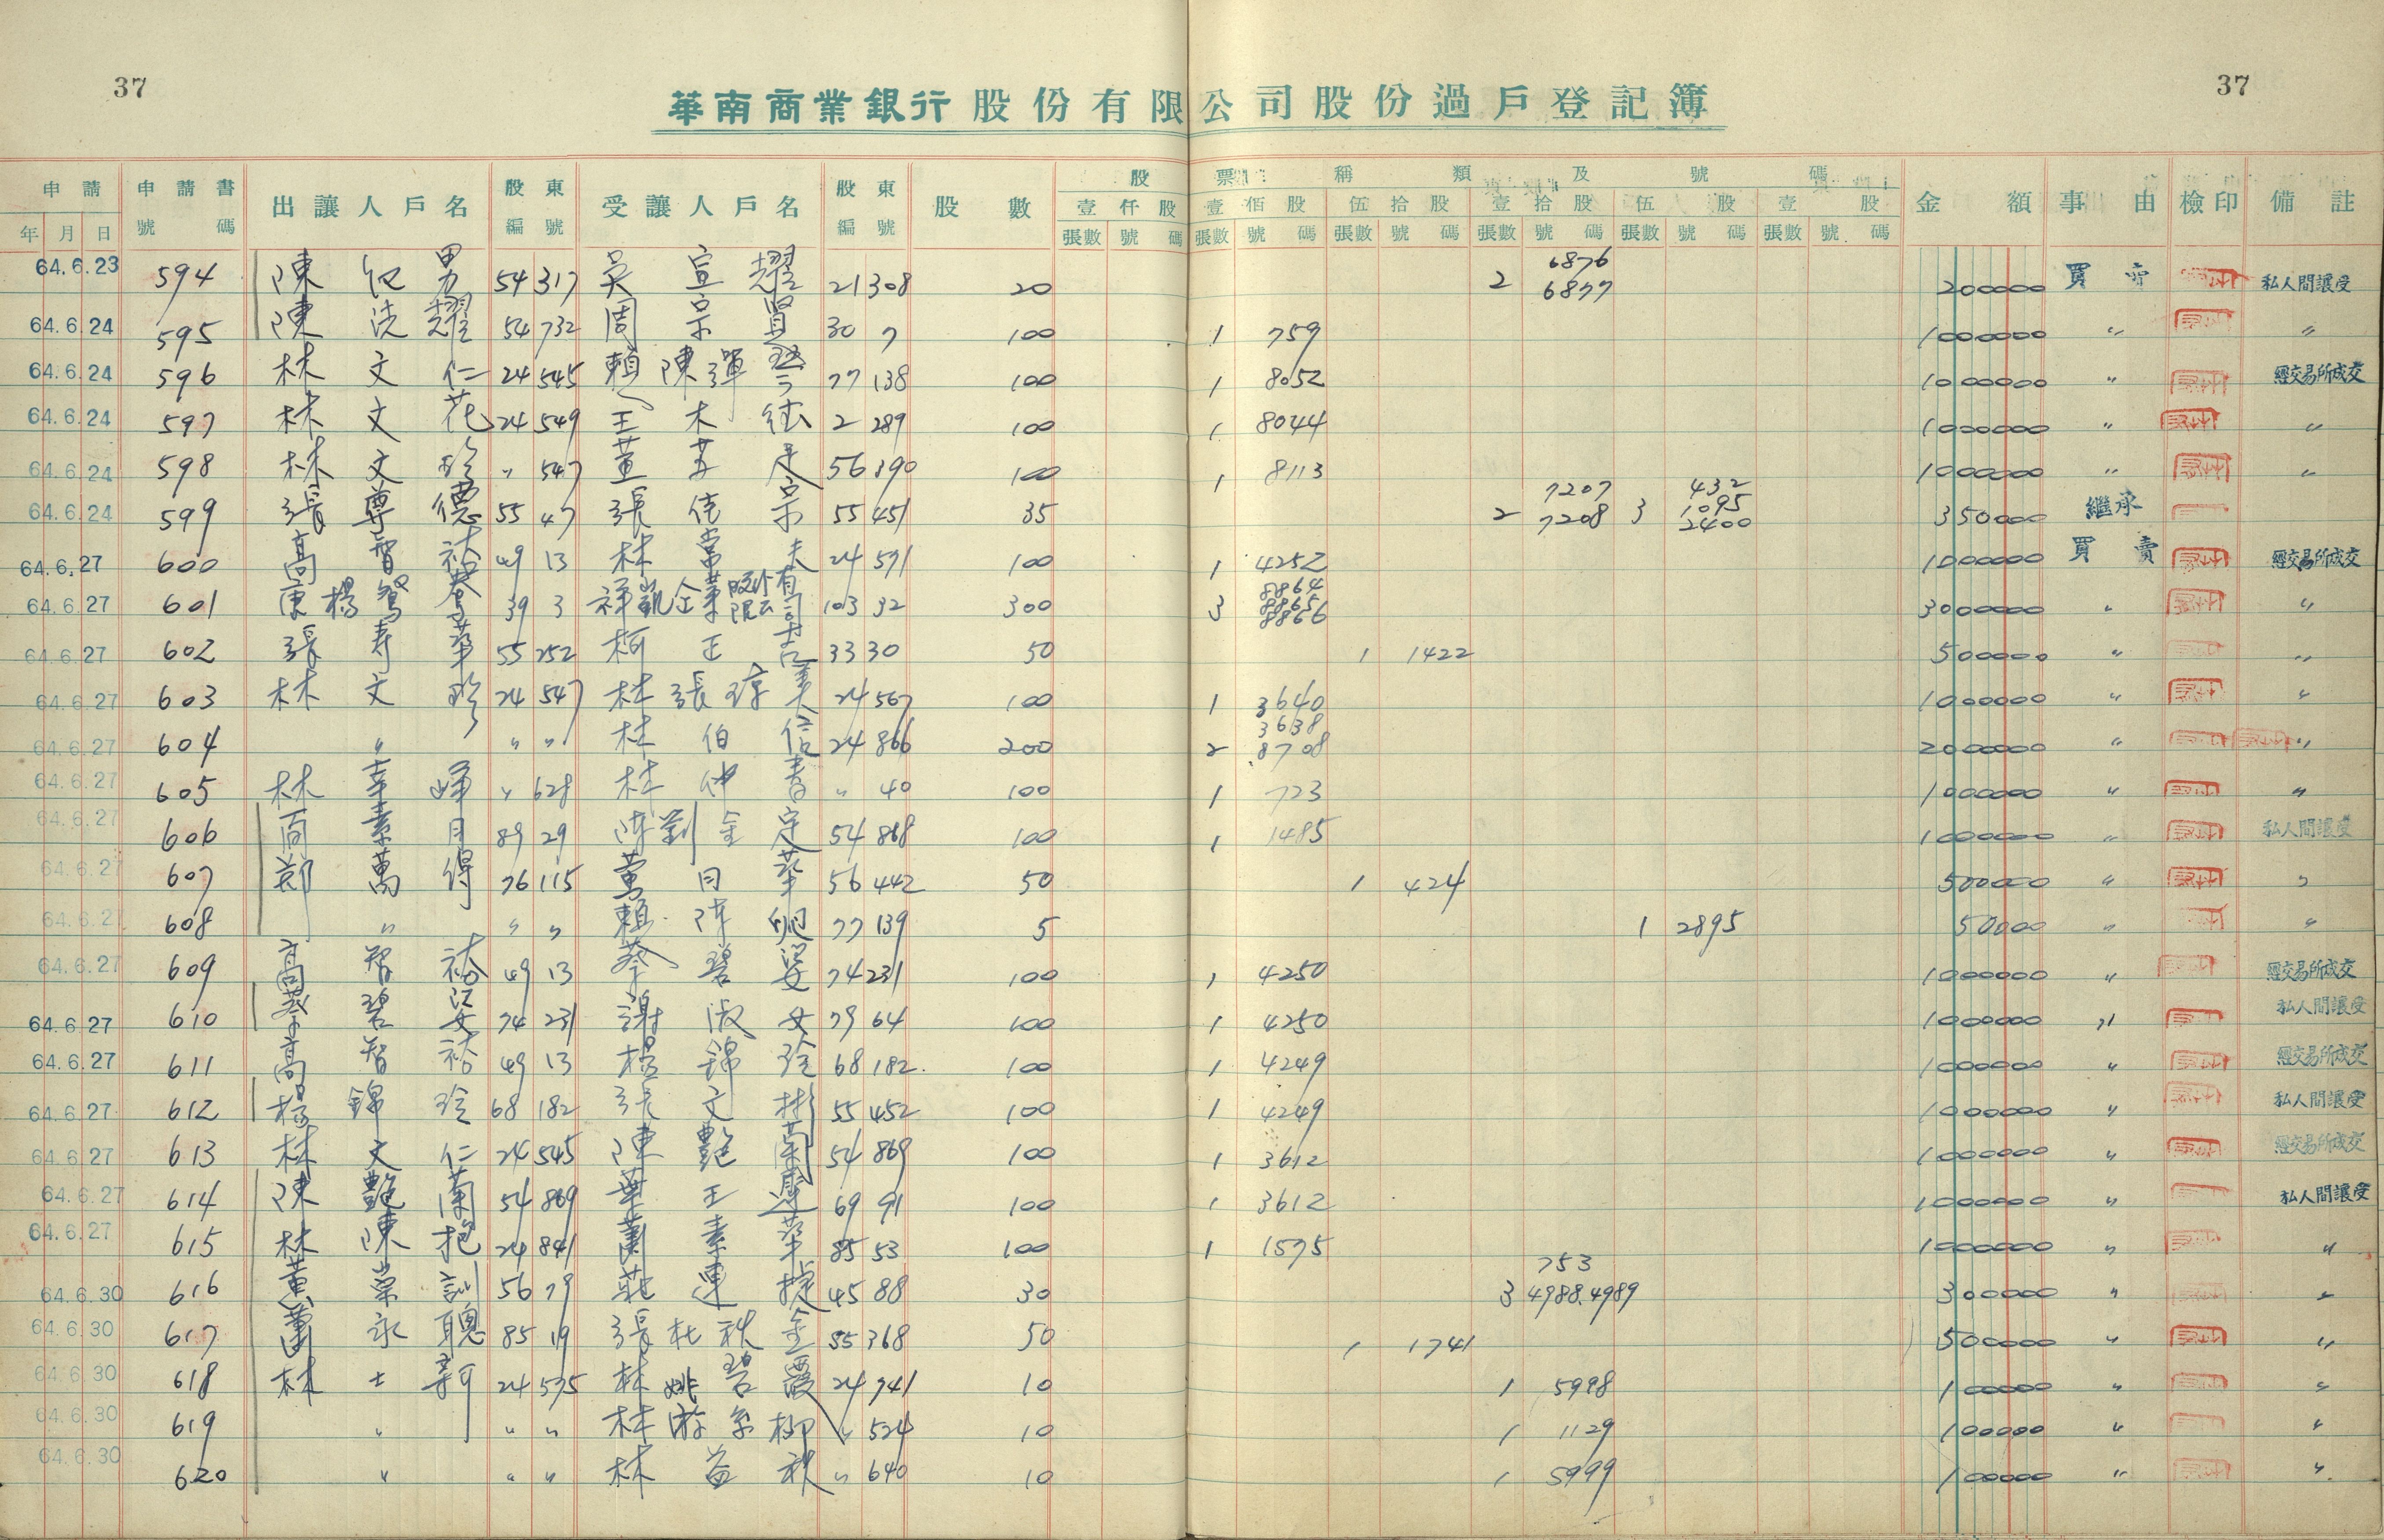 37
37
華南商業銀行股份有限公司股份過戶登記簿
申請 申請書 出讓人戶名 股東 受讓人戶名 股東 股數 股票種類及號碼 金額 事由 檢印 備註
年 月 日 號碼 編號 編號 壹仟股 壹佰股 伍拾股 壹拾股 伍股 壹股
張數 號碼 張數 號碼 張數 號碼 張數 號碼 張數 號碼 張數 號碼
6876
64.6.23 594 陳 男 54 317 吳宣耀 21 308 20 2 6877 200000 買賣 私人間讓受
64.6.24 595 陳 耀 54 732 周宗賢 30 7 100 1 759 1000000 〃 〃
64.6.24 596 林文仁 24 545 賴陳 77 138 100 1 8052 1000000 〃 經交易所成交
64.6.24 597 林文花 24 549 王木 2 289 100 1 8044 1000000 〃 〃
64.6.24 598 林文珍 〃 547 足 56 390 100 1 8113 1000000 〃 〃
7207 432
64.6.24 599 張尊德 55 47 張 宗 55 451 35 2 7208 3 1095 350000 繼承
2400
64.6.27 600 高智 49 13 林常夫 24 591 100 1 4252 1000000 買賣 經交易所成交
8864
64.6.27 601 楊 39 3 祥凱企業股份有限公司 103 32 300 3 8865 3000000 〃 〃
8866
64.6.27 602 張壽 55 252 柯正吉 33 30 50 1 1422 500000 〃 〃
64.6.27 603 林文珍 24 547 林張 美 24 567 100 1 3640 1000000 〃 〃
3638
64.6.27 604 〃 〃 〃 林伯信 24 866 200 2 8708 2000000 〃 〃
64.6.27 605 林幸 〃 628 林仲 〃 40 100 1 723 1000000 〃 〃
64.6.27 606 素月 89 29 陳劉金定 54 868 100 1 1485 1000000 〃 私人間讓受
64.6.27 607 鄭萬得 76 115 月華 56 442 50 1 424 500000 〃 〃
64.6.27 608 〃 〃 〃 賴陳 77 139 5 1 2895 50000 〃 〃
64.6.27 609 高智 49 13 蔡碧 74 231 100 1 4250 1000000 〃 經交易所成交
64.6.27 610 蔡碧 74 231 謝淑女 79 64 100 1 4250 1000000 〃 私人間讓受
64.6.27 611 高智 49 13 楊錦玲 68 182 100 1 4249 1000000 〃 經交易所成交
64.6.27 612 楊錦玲 68 182 張文彬 55 452 100 1 4249 1000000 〃 私人間讓受
64.6.27 613 林文仁 24 545 陳艷蘭 54 869 100 1 3612 1000000 〃 經交易所成交
64.6.27 614 陳艷蘭 54 869 葉王 69 91 100 1 3612 1000000 〃 私人間讓受
64.6.27 615 林陳抱 24 841 蕭素華 85 53 100 1 1575 1000000 〃 〃
753
64.6.30 616 黃榮訓 56 79 莊連 45 88 30 3 4988.4989 300000 〃 〃
64.6.30 617 蕭永聰 85 19 張杜秋金 55 368 50 1 1741 500000 〃 〃
64.6.30 618 林士 24 575 林姚碧霞 24 741 10 1 5998 100000 〃 〃
64.6.30 619 〃 〃 〃 林游 柳 〃 524 10 1 1129 100000 〃 〃
64.6.30 620 〃 〃 〃 林益秋 〃 640 10 1 5999 100000 〃 〃